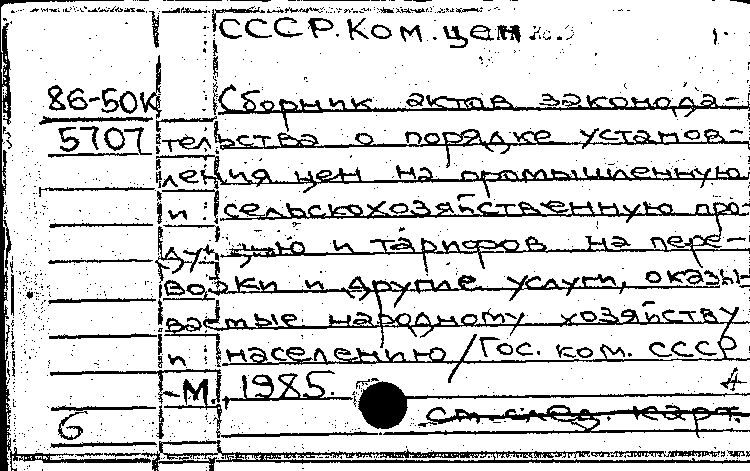 СССР. Ком. цен
86-50К Сборник актов законода-
5707 тельства о порядке установ-
ления цен на промышленную
и сельскохозяйственную про-
дукцию и тарифов на пере-
возки и другие услуги, оказы-
ваемые народному хозяйству
и населению/Гос. ком. СССР
-М., 1985.
А
см. след. карт.
6